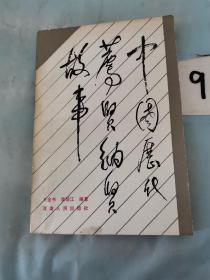 中国历代
荐贤纳贤
故事
编著
河南人民出版社
9